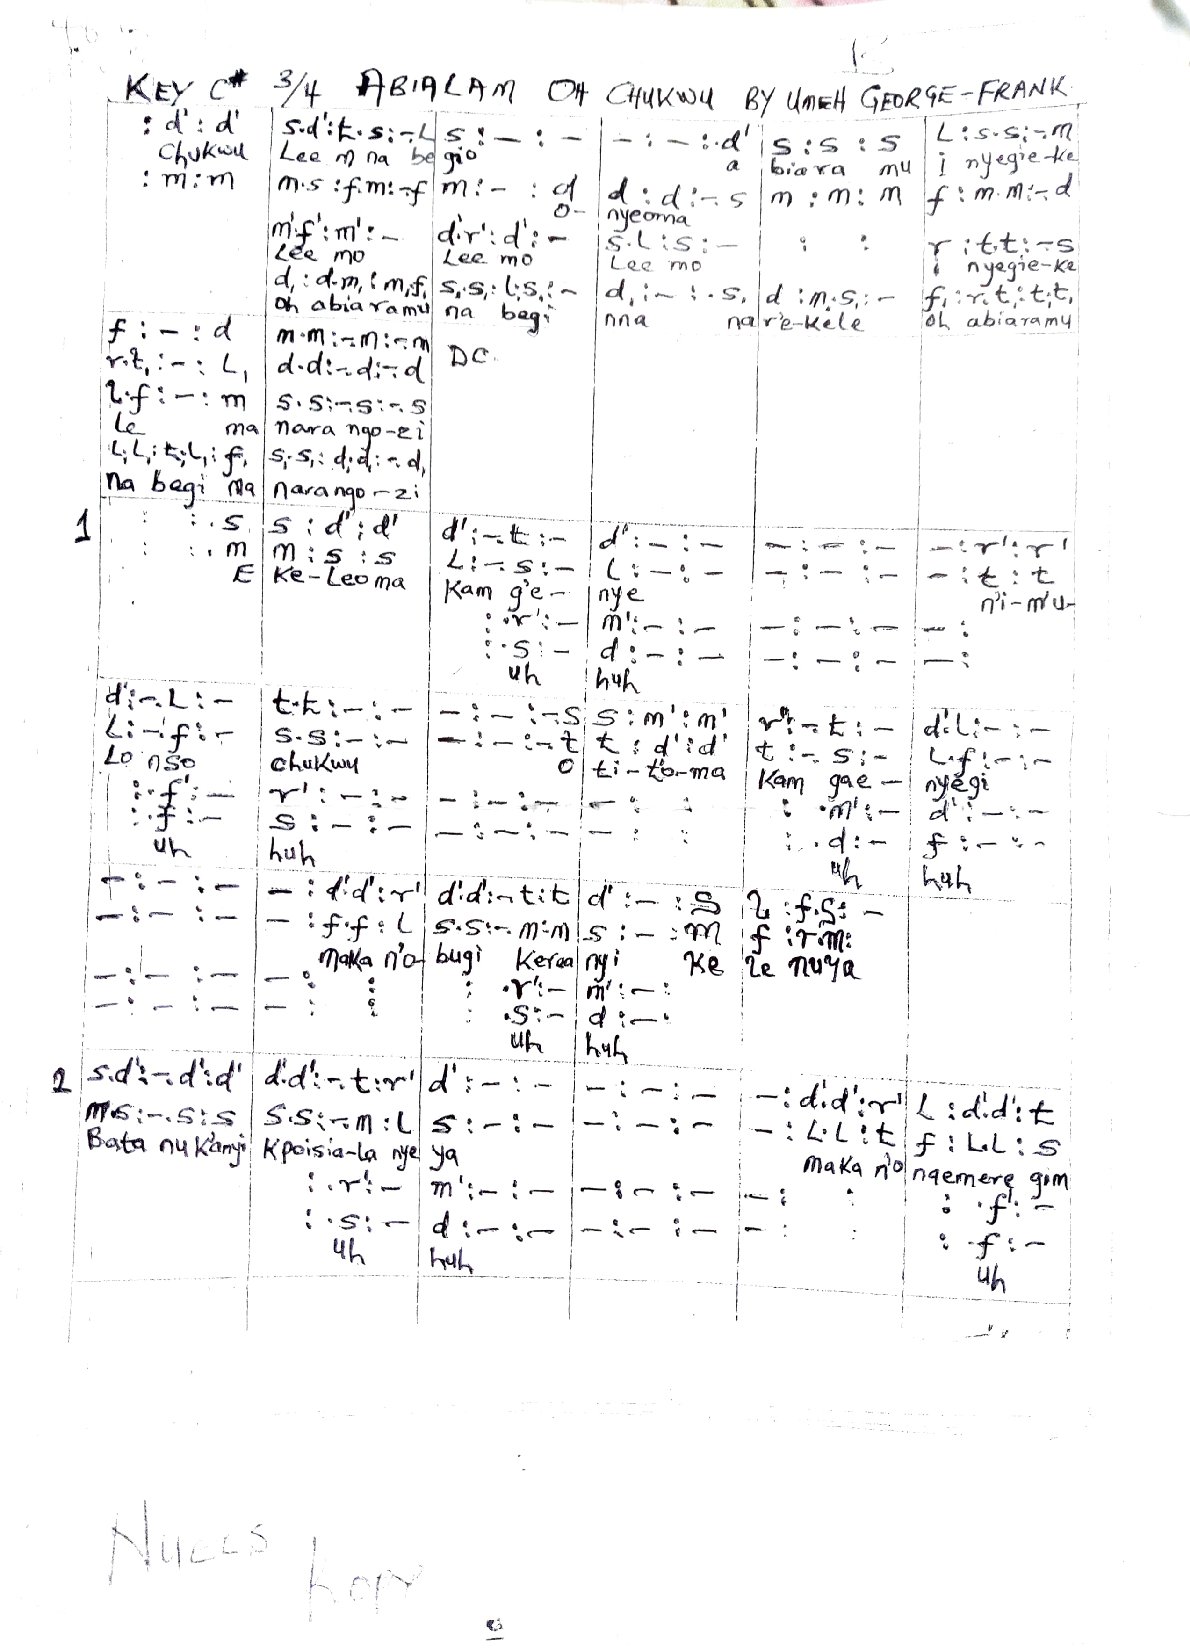 KEY C# 3/4 ABIALAM OH CHUKWU BY UMEH GEORGE-FRANK
: d' : d' | s.d':t.s:-.L | s : - : - | - : - :.d' | s : s : s | L : s.s:-.m
Chukwu Lee m na be gio a biara mu i nyegie-ke
: m : m | m.s : f.m:-.f | m : - : d | d : d :-. s | m : m : m | f : m.m:-.d
o- nyeoma
m'.f' : m' : - | d'.r' : d' : - | s.L : s : - | : : | r : t.t:-.s
Lee mo Lee mo Lee mo i nyegie-ke
d, : d.m, : m,f, | s,.s,: l,.s,:- | d, : - : .s, | d : m.s, : - | f, : r.t, : t,.t,
Oh abiaramu na begi nna na r'e-kele oh abiaramu
f : - : d | m.m:-.m:-.m
r.t, : - : L, | d.d:-.d:-.d | DC.
l.f : - : m | s.s:-.s:-.s
le ma nara ngo-zi
L,.L,: t,.L, : f, | s,.s,: d,.d,:-.d,
na begi ma narango-zi
1 : : . s | s : d' : d' | d' :-.t :- | d' : - : - | - : - : - | - : r' : r'
: : . m | m : s : s | L :-.s : - | L : - : - | - : - : - | - : t : t
E Ke-Leoma Kam g'e- nye n'i-m'u-
: .r' : - | m' : - : - | - : - : - | - :
: .s : - | d : - : - | - : - : - | - :
uh huh
d' :-.L : - | t.t : - : - | - : - :-.s | s : m' : m' | r' :-.t : - | d'.L : - : -
L :-.f : - | s.s : - : - | - : - :-.t | t : d' : d' | t :-.s : - | L.f : - : -
Lo nso chukwu O ti-t'o-ma Kam gae - nyegi
: .f' : - | r' : - : - | - : - : - | - : : | : .m' : - | d' : - : -
: .f : - | s : - : - | - : - : - | - : : | : .d : - | f : - : -
uh huh uh huh
- : - : - | - : d'.d' : r' | d'.d':-.t:t | d' : - : s | l : f.s : -
- : - : - | - : f.f : L | s.s:-.m:m | s : - : m | f : r.m:
maka n'o- bugi keraa nyi ke le nu'ya
- : - : - | - : : | : .r' : - | m' : - :
- : - : - | - : : | : .s : - | d : - :
uh huh
2 s.d':-.d':d' | d'.d':-.t:r' | d' : - : - | - : - : - | - : d'.d' : r' | L : d'.d' : t
m.s:-.s:s | s.s:-.m:L | s : - : - | - : - : - | - : L.L : t | f : L.L : s
Bata nu k'anyi Kpoisia-la nye ya maka n'o ngemere gim
: .r' : - | m' : - : - | - : - : - | - : : | : .f' : -
: .s : - | d : - : - | - : - : - | - : : | : .f : -
uh huh uh